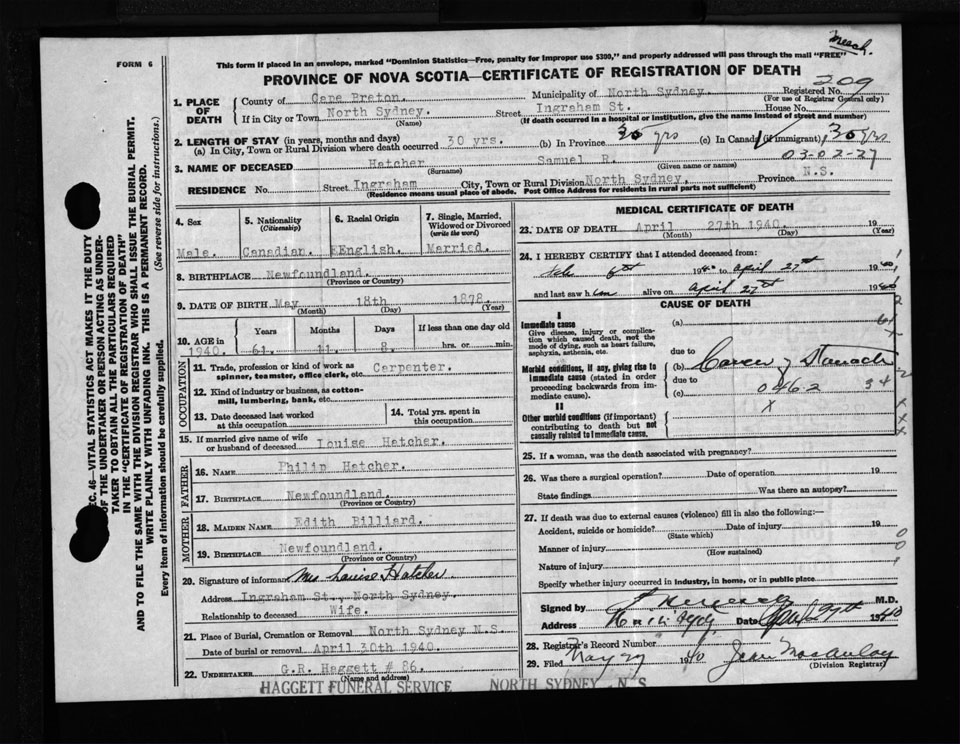 Meech.
FORM 6
This form if placed in an envelope, marked "Dominion Statistics—Free, penalty for improper use $300," and properly addressed will pass through the mail "FREE"
PROVINCE OF NOVA SCOTIA—CERTIFICATE OF REGISTRATION OF DEATH
209
1. PLACE OF DEATH
County of Cape Breton. Municipality of North Sydney. Registered No.
(For use of Registrar General only)
If in City or Town North Sydney. Street Ingraham St. House No.
(Name) (If death occurred in a hospital or institution, give the name instead of street and number)
2. LENGTH OF STAY (in years, months and days)
(a) In City, Town or Rural Division where death occurred 30 yrs. (b) In Province 30 yrs (c) In Canada (if immigrant) 30 yrs
03-02-27
3. NAME OF DECEASED Hatcher Samuel R.
(Surname) (Given name or names)
RESIDENCE No. Street Ingraham City, Town or Rural Division North Sydney. Province N.S.
(Residence means usual place of abode. Post Office Address for residents in rural parts not sufficient)
4. Sex 5. Nationality (Citizenship) 6. Racial Origin 7. Single, Married, Widowed or Divorced (write the word)
Male. Canadian. EEnglish. Married.
8. BIRTHPLACE Newfoundland.
(Province or Country)
9. DATE OF BIRTH May 18th 1878.
(Month) (Day) (Year)
10. AGE in 1940. Years Months Days If less than one day old
61. 11 8. hrs. or min.
OCCUPATION
11. Trade, profession or kind of work as spinner, teamster, office clerk, etc. Carpenter.
12. Kind of industry or business, as cotton-mill, lumbering, bank, etc.
13. Date deceased last worked at this occupation
14. Total yrs. spent in this occupation
15. If married give name of wife or husband of deceased Louise Hatcher.
FATHER
16. NAME Philip Hatcher.
17. BIRTHPLACE Newfoundland.
(Province or Country)
MOTHER
18. MAIDEN NAME Edith Billiard.
19. BIRTHPLACE Newfoundland.
(Province or Country)
20. Signature of informant Mrs Louise Hatcher
Address Ingraham St., North Sydney.
Relationship to deceased Wife.
21. Place of Burial, Cremation or Removal North Sydney N.S.
Date of burial or removal April 30th 1940.
22. UNDERTAKER G.R. Haggett # 86.
(Name and address)
HAGGETT FUNERAL SERVICE NORTH SYDNEY N. S.
MEDICAL CERTIFICATE OF DEATH
23. DATE OF DEATH April 27th 1940. 19
(Month) (Day) (Year)
24. I HEREBY CERTIFY that I attended deceased from:
6th 1940 to april 27th 1940
and last saw him alive on april 27th 1940
CAUSE OF DEATH
I
Immediate cause.
Give disease, injury or complication which caused death, not the mode of dying, such as heart failure, asphyxia, asthenia, etc.
(a)
due to
(b) Cancer of Stomach
Morbid conditions, if any, giving rise to immediate cause (stated in order proceeding backwards from immediate cause).
due to
(c) 0462 34
II
Other morbid conditions (if important) contributing to death but not causally related to immediate cause.
x
25. If a woman, was the death associated with pregnancy?
26. Was there a surgical operation? Date of operation 19
State findings Was there an autopsy?
27. If death was due to external causes (violence) fill in also the following:—
Accident, suicide or homicide? Date of injury 19
(State which)
Manner of injury
(How sustained)
Nature of injury
Specify whether injury occurred in industry, in home, or in public place
Signed by M.D.
Address Date April 29th 1940
28. Registrar's Record Number
29. Filed May 1940 Jean MacAulay
(Division Registrar)
SEC. 46—VITAL STATISTICS ACT MAKES IT THE DUTY
OF THE UNDERTAKER OR PERSON ACTING AS UNDER-
TAKER TO OBTAIN ALL THE PARTICULARS REQUIRED
IN THE "CERTIFICATE OF REGISTRATION OF DEATH"
AND TO FILE THE SAME WITH THE DIVISION REGISTRAR WHO SHALL ISSUE THE BURIAL PERMIT.
WRITE PLAINLY WITH UNFADING INK. THIS IS A PERMANENT RECORD.
Every item of information should be carefully supplied. (See reverse side for instructions.)